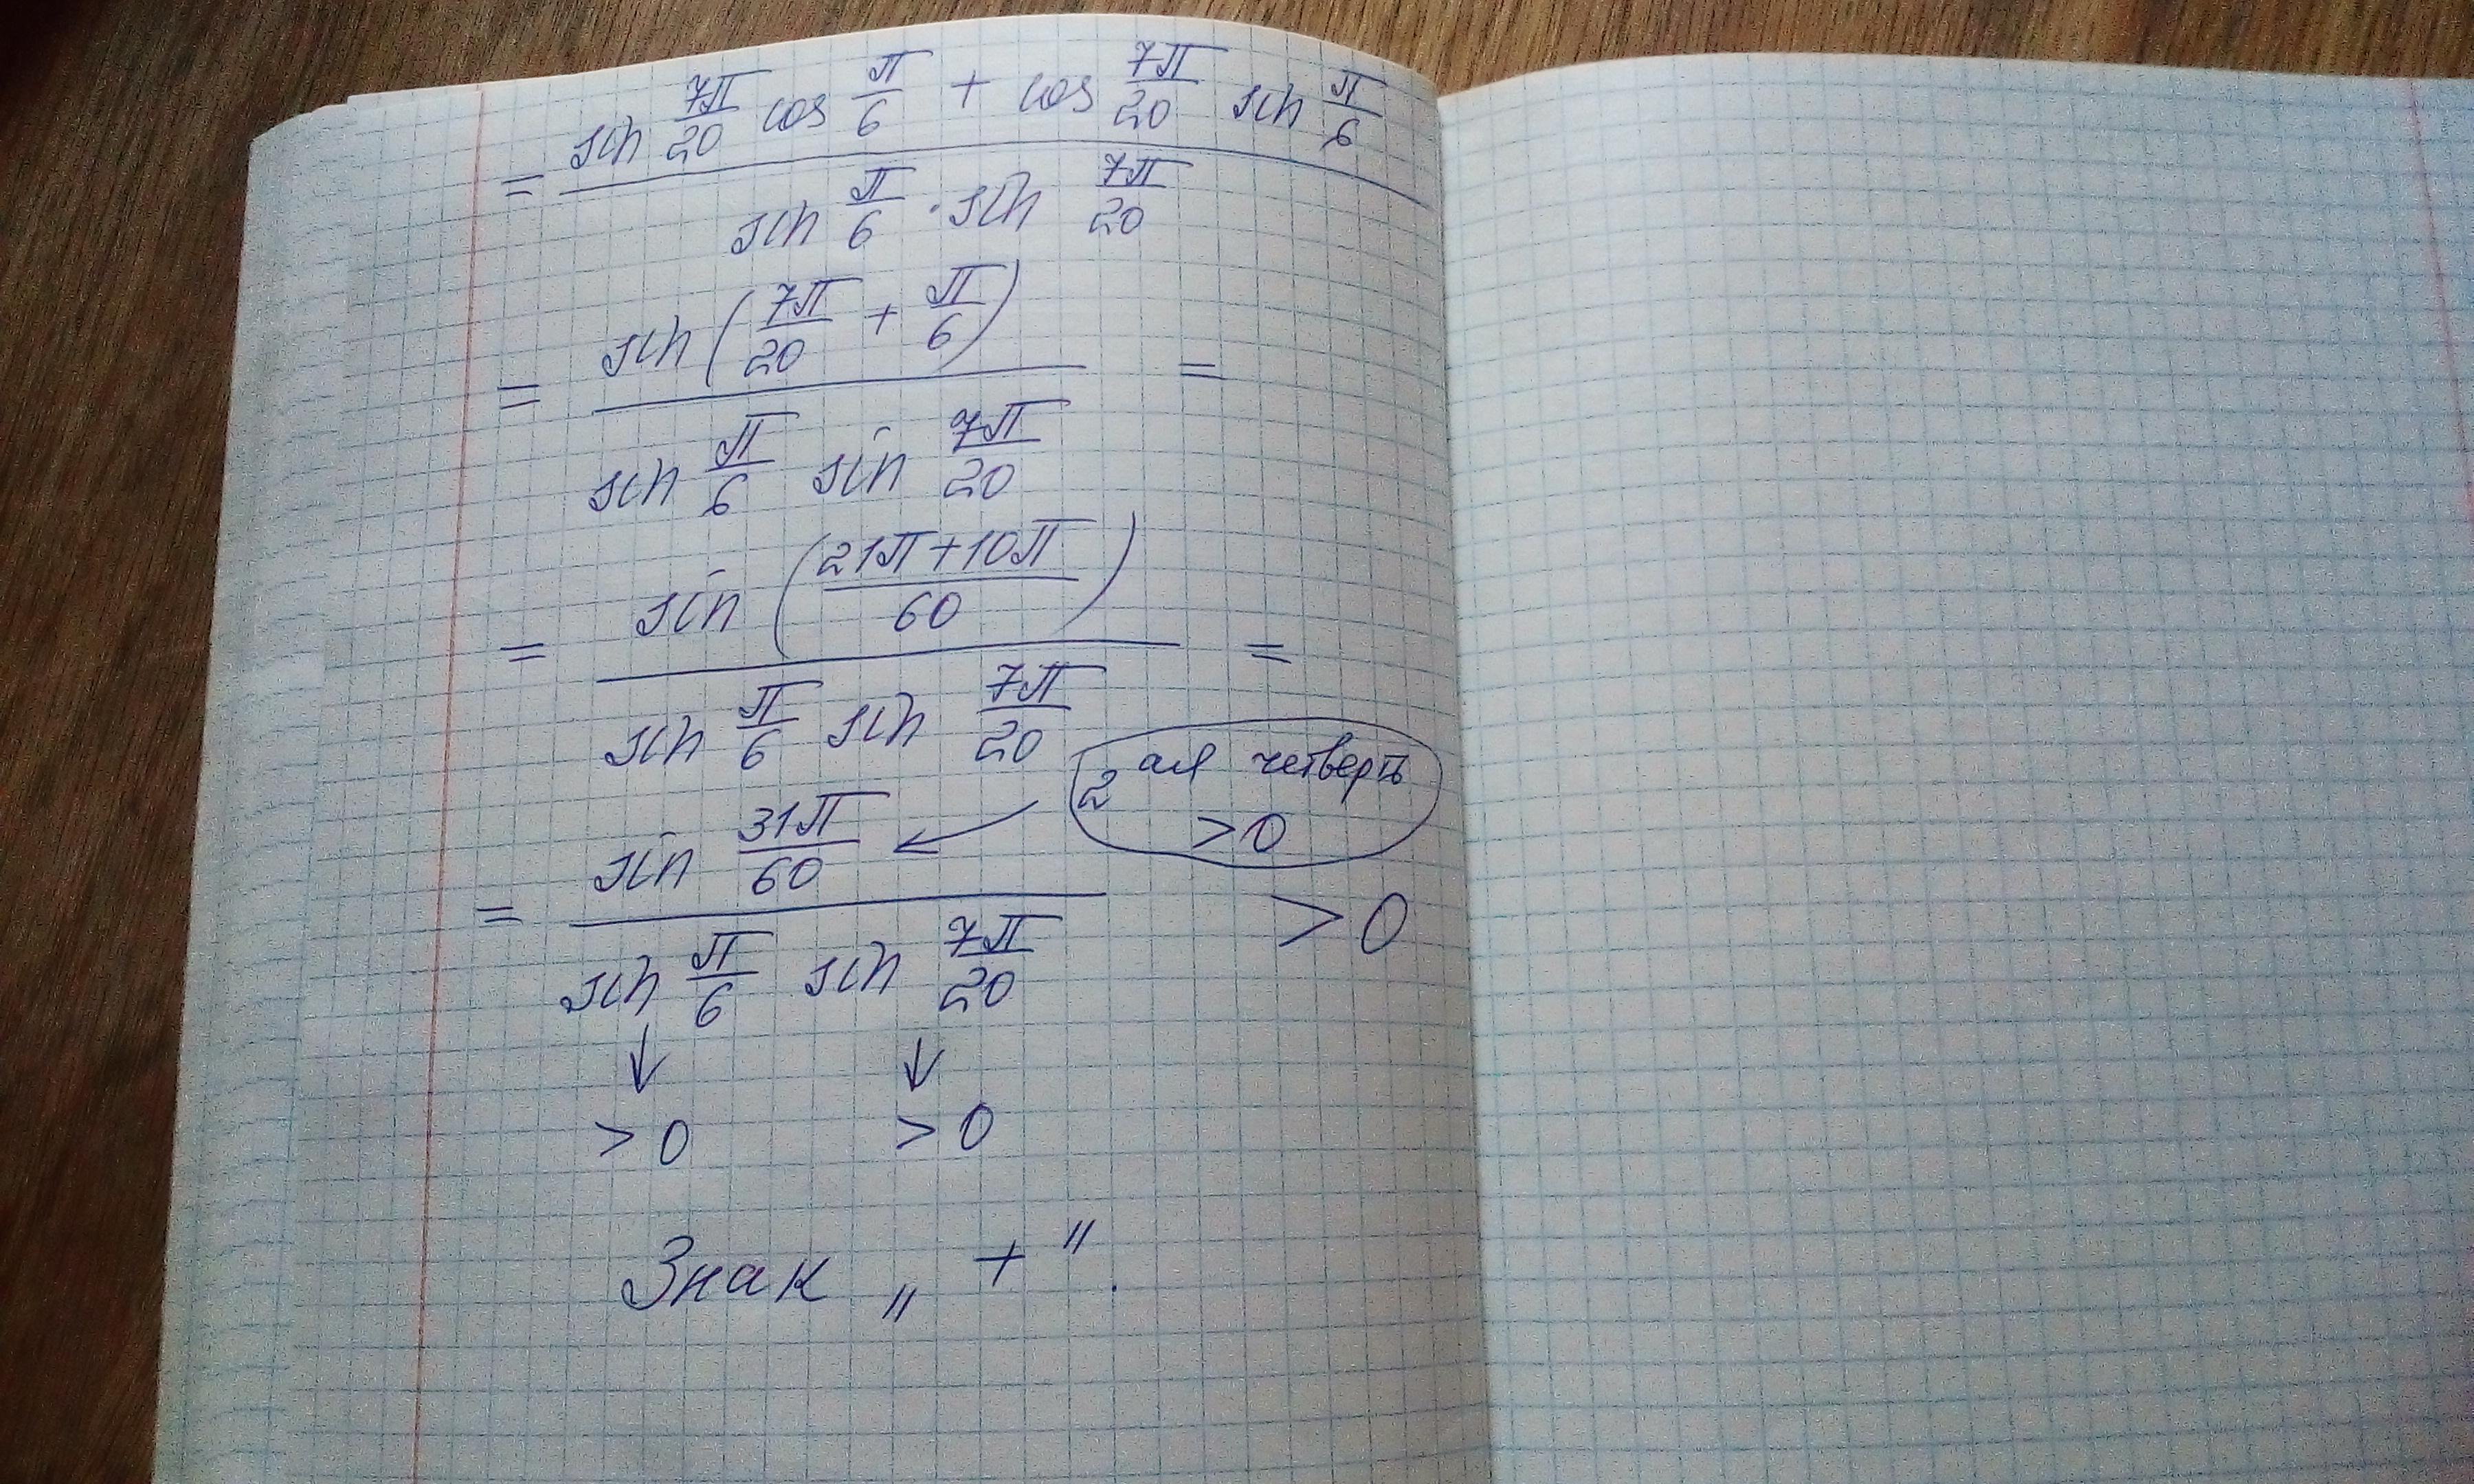 = (sin 7π/20 cos π/6 + cos 7π/20 sin π/6) / (sin π/6 · sin 7π/20)
= sin(7π/20 + π/6) / (sin π/6 sin 7π/20) =
= sin((21π+10π)/60) / (sin π/6 sin 7π/20) =
2 ая четверть
>0
= sin 31π/60 / (sin π/6 sin 7π/20) > 0
↓ ↓
> 0 > 0
Знак „ + ".